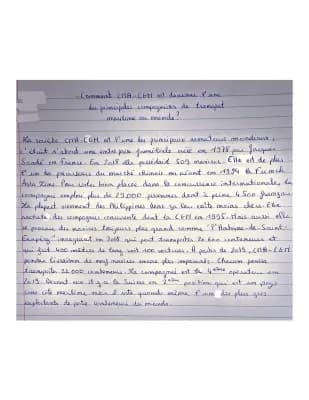 Comment CMA-CGM est devenu l'une
des principales compagnies de transport
maritime au monde ?
La société CMA-CGM est l'une des principaux armateurs mondiaux,
c'était d'abord une entreprise familiale créé en 1978 par Jacques
Saadé en France. En 2018 elle possédait 509 navires. Elle est de plus
l'un des précurseurs du marché chinois en créant en 1994 la French
Asia Line. Pour être bien placée dans la concurrence internationale, la
compagnie emploie plus de 29 000 personnes dont à peine 4 500 français
La plupart viennent des Philippines dans les coûts moins chers. Elle
rachète des compagnies concurrente dont la CGM en 1996. Mais aussi elle
se procure des navires toujours plus grands comme "l'Antoine de Saint-
Exupéry" inauguré en 2018 qui peut transporter 20 600 conteneurs et
qui fait 400 mètres de long soit 400 A partir de 2019, CMA-CGM
prévu livraison de neuf navires encore plus imposants. Chacun pourra
transporter 22 000 conteneurs. La compagnie est la 4ème opérateur en
2019. Devant eux il y a la Suisse en 2ème position qui est un pays
sans côte maritime mais il reste quand même l'une des plus gros
exploitants de porte conteneurs du monde.